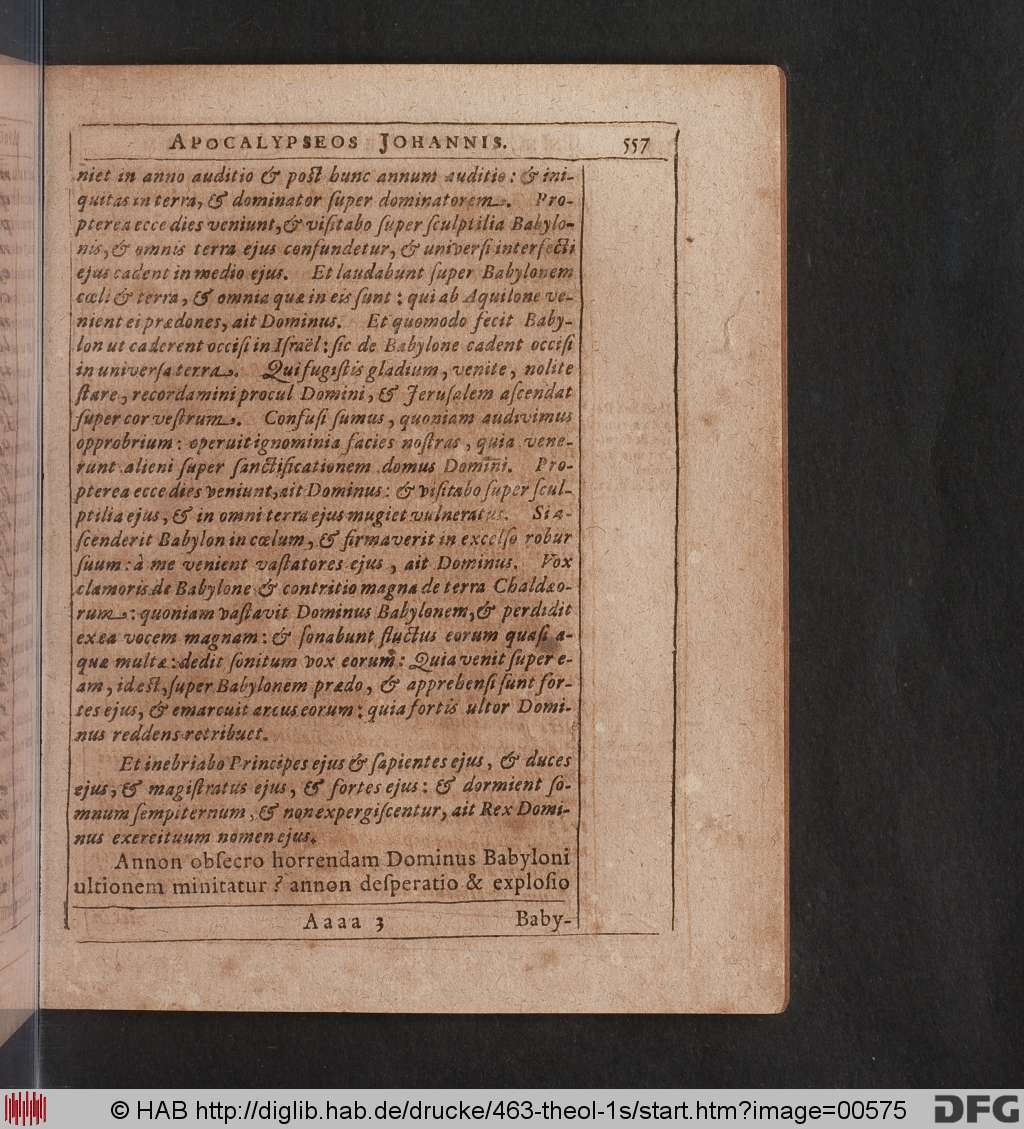 APOCALYPSEOS JOHANNIS. 557
niet in anno auditio & poſt hunc annum auditio: & ini-
quitas in terra, & dominator ſuper dominatorem. Pro-
pterea ecce dies veniunt, & viſitabo ſuper ſculptilia Babylo-
nis, & omnis terra ejus confundetur, & univerſi interfecti
ejus cadent in medio ejus. Et laudabunt ſuper Babylonem
cœli & terra, & omnia quæ in eis ſunt: qui ab Aquilone ve-
nient ei prædones, ait Dominus. Et quomodo fecit Baby-
lon ut caderent occiſi in Iſraël: ſic de Babylone cadent occiſi
in univerſa terra. Qui fugiſtis gladium, venite, nolite
ſtare, recordamini procul Domini, & Jeruſalem aſcendat
ſuper cor veſtrum. Confuſi ſumus, quoniam audivimus
opprobrium: operuit ignominia facies noſtras, quia vene-
runt alieni ſuper ſanctificationem domus Domini. Pro-
pterea ecce dies veniunt, ait Dominus: & viſitabo ſuper ſcul-
ptilia ejus, & in omni terra ejus mugiet vulneratus. Si a-
ſcenderit Babylon in cœlum, & firmaverit in excelſo robur
ſuum: à me venient vaſtatores ejus, ait Dominus. Vox
clamoris de Babylone & contritio magna de terra Chaldæo-
rum: quoniam vaſtavit Dominus Babylonem, & perdidit
ex ea vocem magnam: & ſonabunt fluctus eorum quaſi a-
quæ multæ: dedit ſonitum vox eorum: Quia venit ſuper e-
am, id eſt, ſuper Babylonem prædo, & apprehenſi ſunt for-
tes ejus, & emarcuit arcus eorum: quia fortis ultor Domi-
nus reddens retribuet.
Et inebriabo Principes ejus & ſapientes ejus, & duces
ejus, & magiſtratus ejus, & fortes ejus: & dormient ſo-
mnum ſempiternum, & non expergiſcentur, ait Rex Domi-
nus exercituum nomen ejus.
Annon obſecro horrendam Dominus Babyloni
ultionem minitatur? annon deſperatio & exploſio
Aaaa 3 Baby-
© HAB http://diglib.hab.de/drucke/463-theol-1s/start.htm?image=00575 DFG